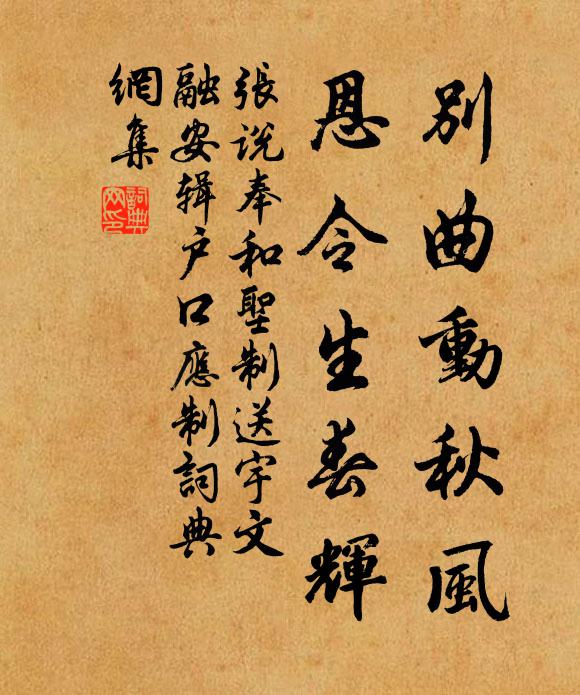 別曲動秋風
恩令生春輝
張説奉和聖制送宇文
融安輯户口應制詞典
網集
詞典网印